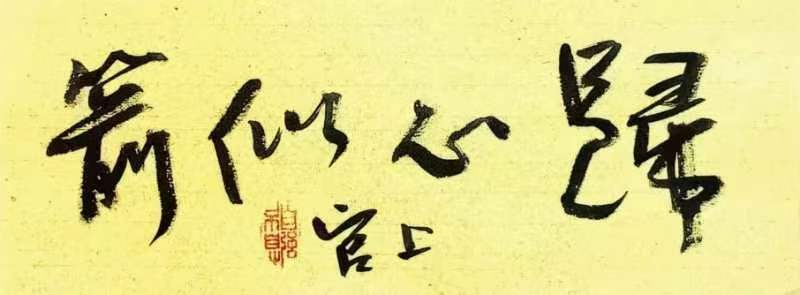 歸心似箭
上官